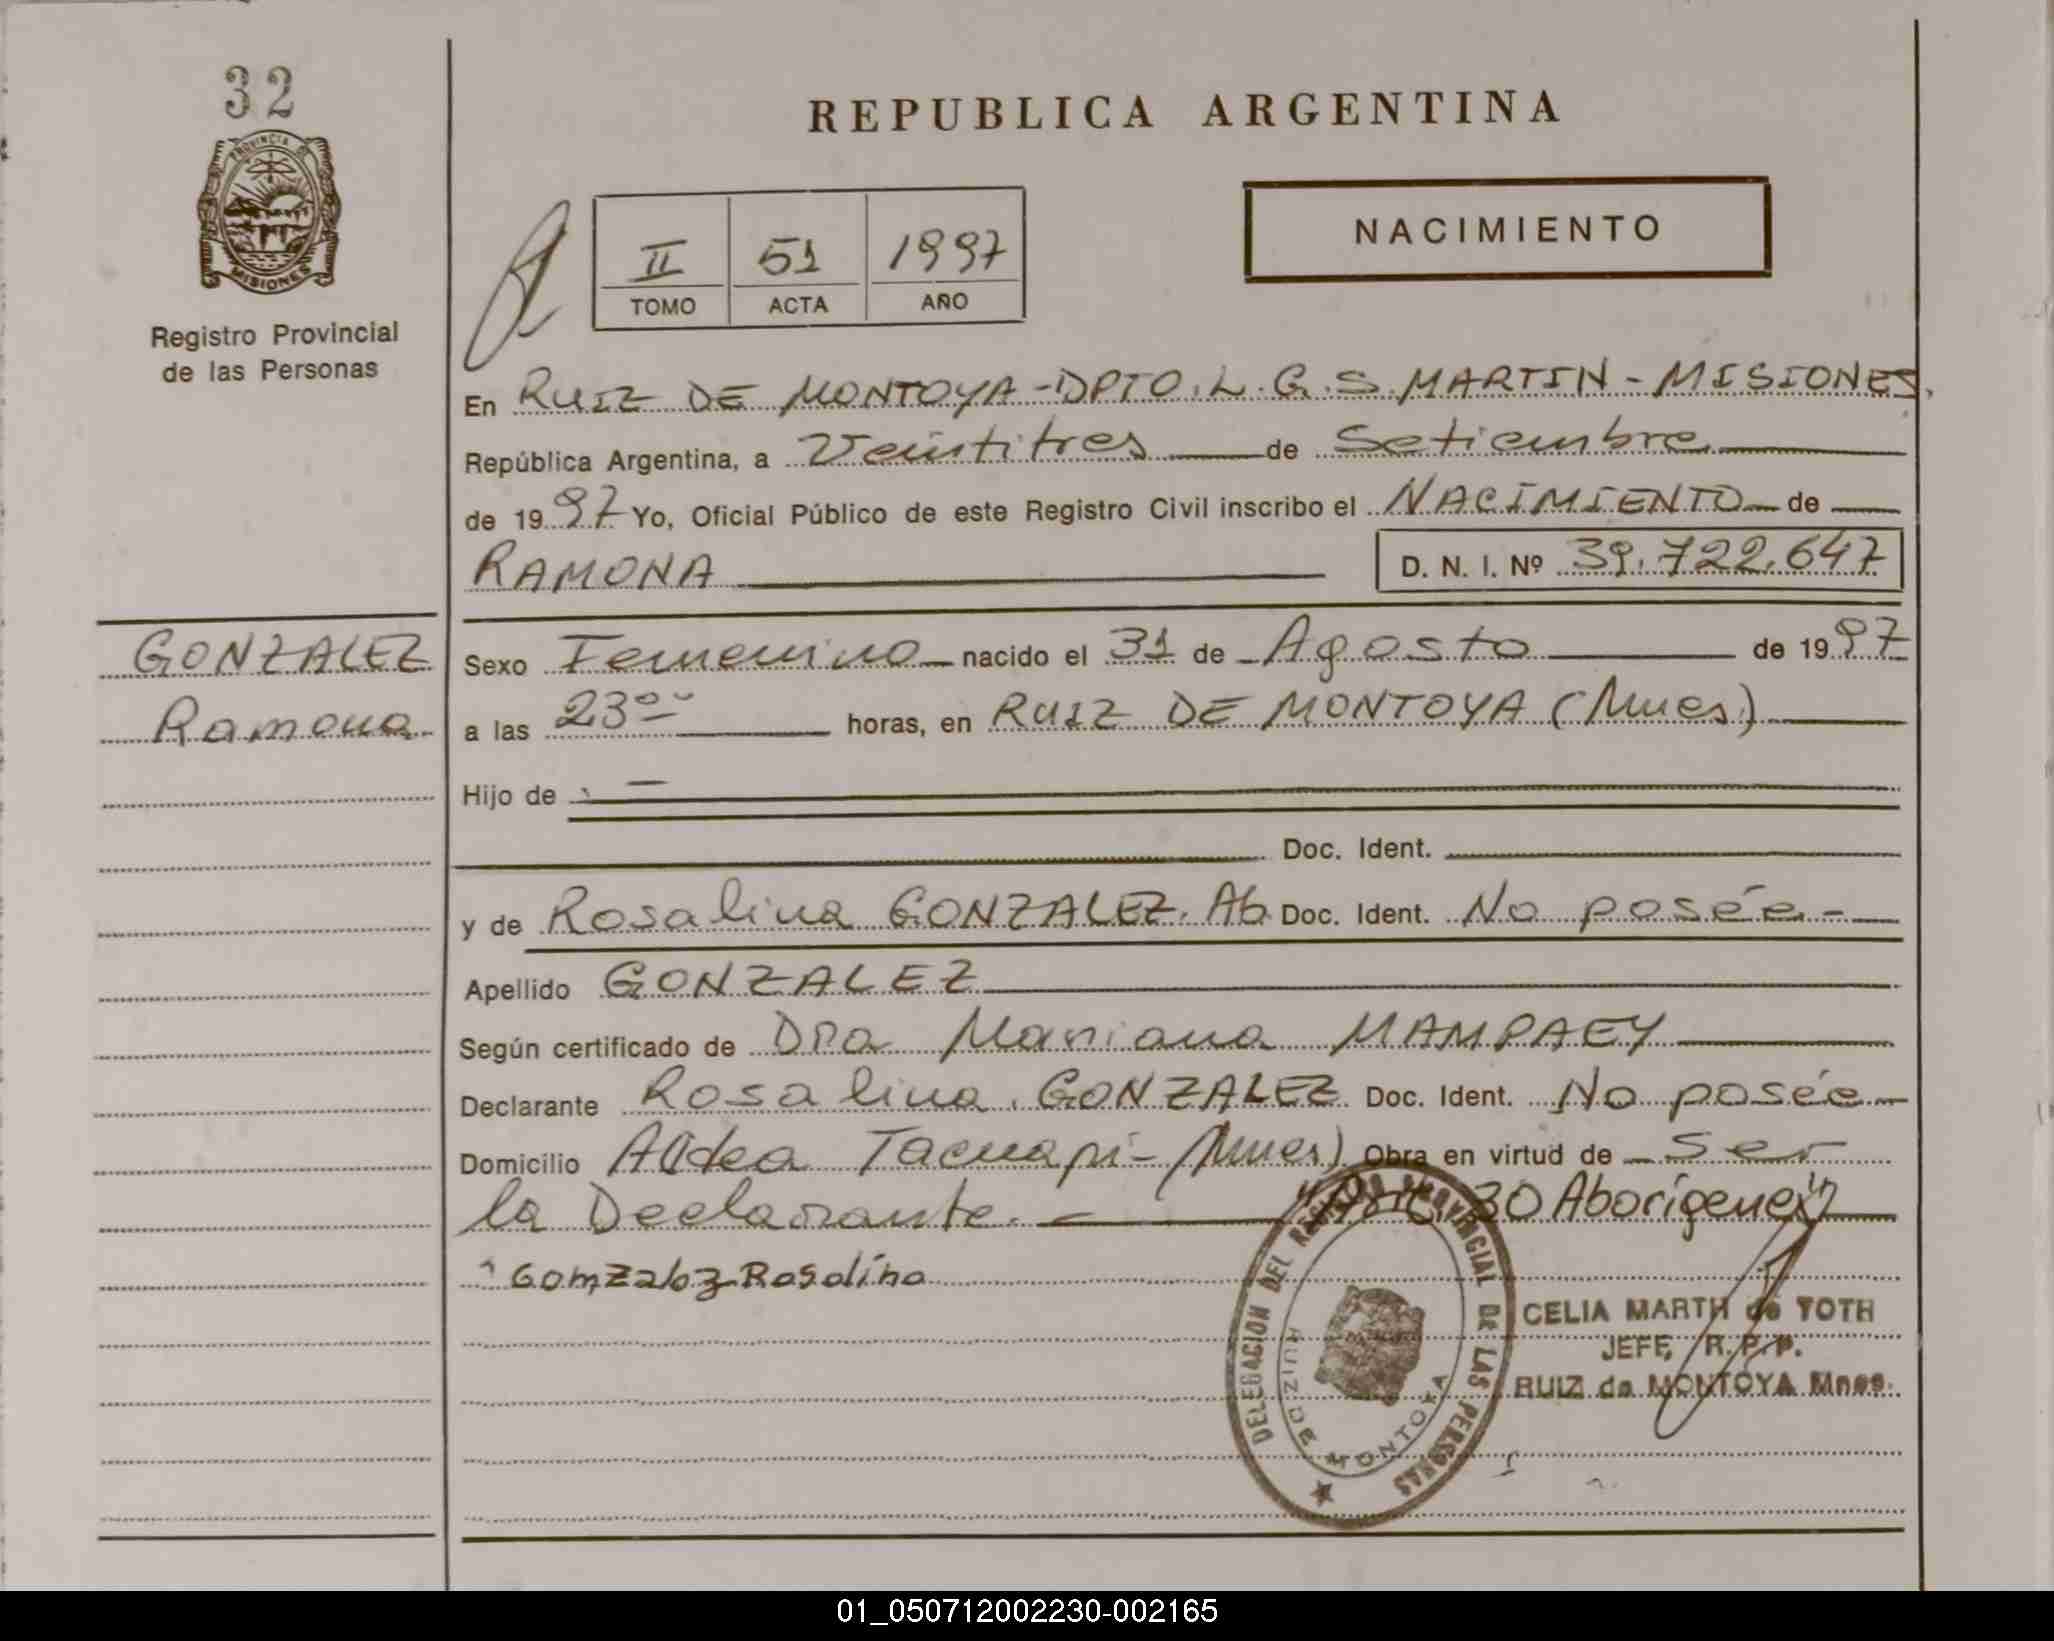 32
PROVINCIA DE
MISIONES
Registro Provincial
de las Personas
REPUBLICA ARGENTINA
NACIMIENTO
II 51 1997
TOMO ACTA AÑO
En RUIZ DE MONTOYA - DPTO. L. G. S. MARTIN - MISIONES.
República Argentina, a Veintitres de Setiembre
de 1997 Yo, Oficial Público de este Registro Civil inscribo el NACIMIENTO de
RAMONA D. N. I. Nº 39.722.647
GONZALEZ
Ramona
Sexo Femenino nacido el 31 de Agosto de 1997
a las 23ºº horas, en RUIZ DE MONTOYA (Mnes)
Hijo de
Doc. Ident.
y de Rosalina GONZALEZ. Ab. Doc. Ident. No posée -
Apellido GONZALEZ
Según certificado de Dra Mariana MAMPAEY
Declarante Rosalina GONZALEZ Doc. Ident. No posée
Domicilio Aldea Tacuapi - (Mnes) Obra en virtud de Ser
la Declarante. - "Art. 30 Aborígenes"
Gomzalez Rosalina
DELEGACION DEL REGISTRO PROVINCIAL DE LAS PERSONAS
RUIZ DE MONTOYA
CELIA MARTH de TOTH
JEFE, R.P.P.
RUIZ de MONTOYA Mnes.
01_050712002230-002165